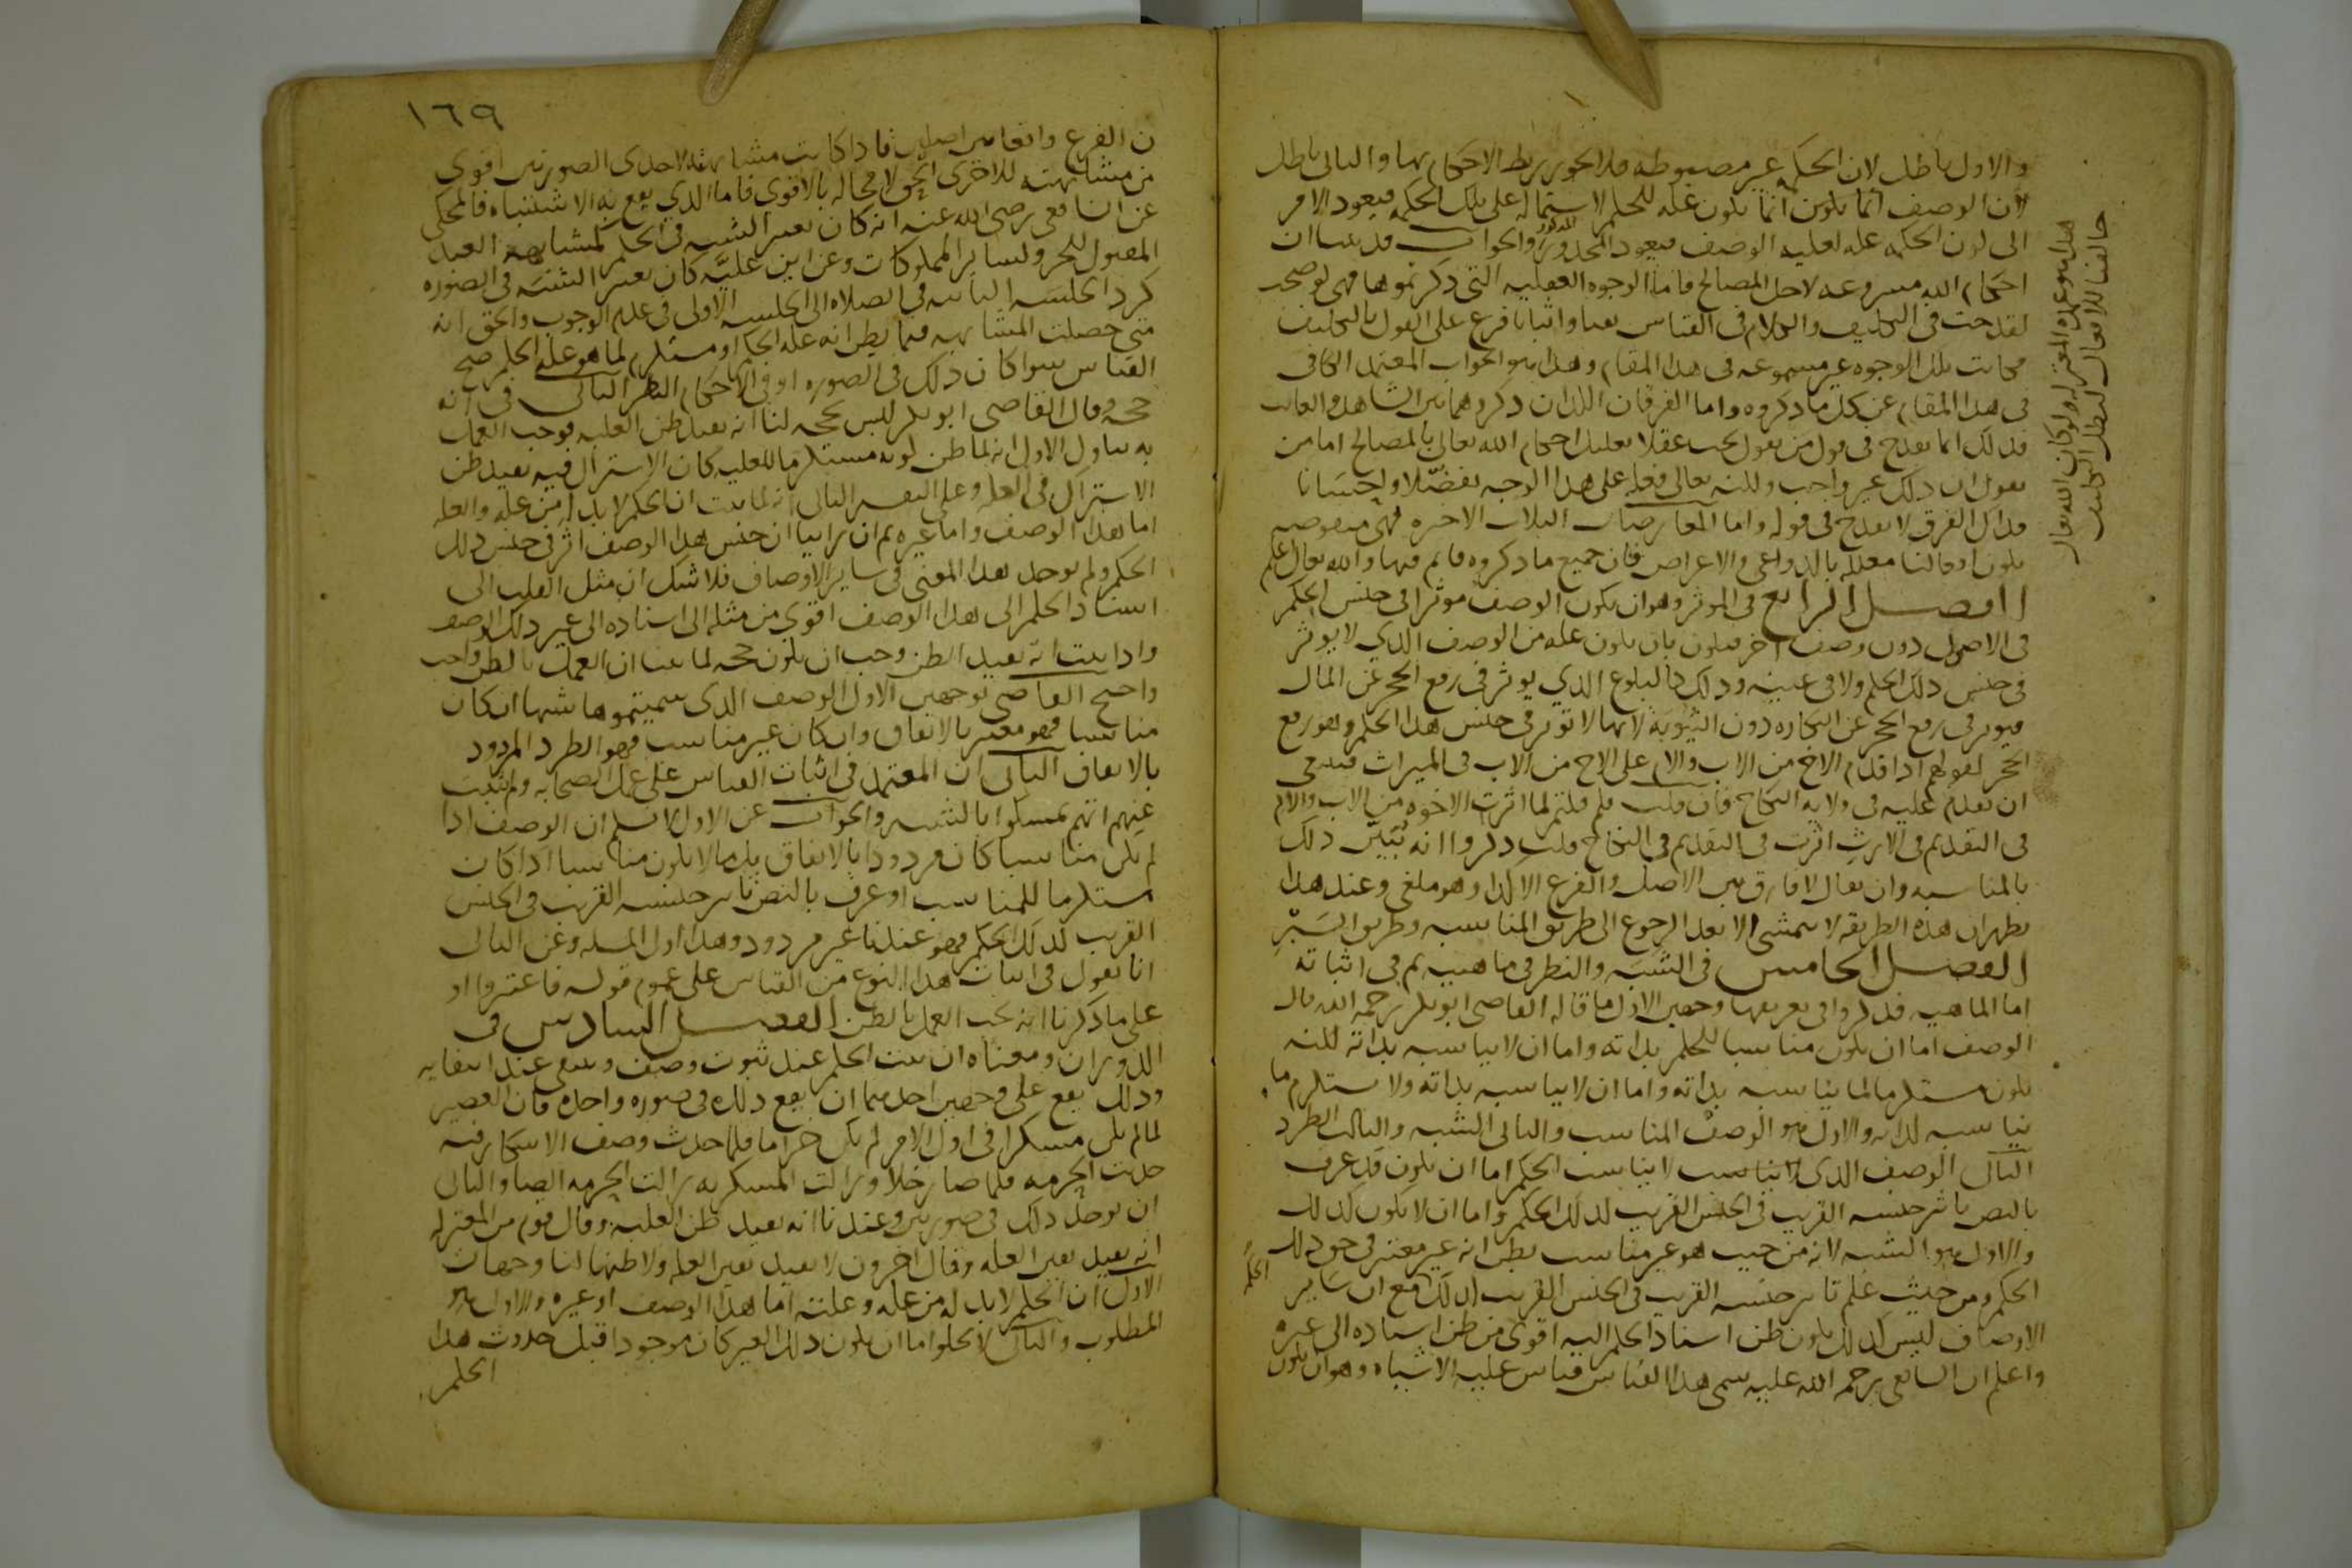 والاول باطل لان الحكم غير مضبوطه فلا يجوز ربط الاحكام بها والثاني باطل
لان الوصف انما يكون علة للحكم لاشتماله على تلك الحكمة فيعود الامر
الى كون الحكمة علة لعلية الوصف فيعود المحذور المذكور والجواب قد بينا ان
احكام الله مشروعه لاجل المصالح فاما الوجوه العقليه التي ذكرتموها فهي لو صحت
لقدحت في التكليف والكلام في القياس نفيا واثباتا فرع على القول بالتكليف
فكانت تلك الوجوه غير مسموعه في هذا المقام وهذا هو الجواب المعتمد الكافي
في هذا المقام عن كل ما ذكروه واما الفرقان اللذان ذكروهما بين الشاهد والغائب
فذلك انما يقدح في قول من يقول يجب عقلا تعليل احكام الله تعالى بالمصالح اما من
يقول ان ذلك غير واجب ولكنه تعالى فعله على هذا الوجه تفضلا واحسانا
فذاك الفرق لا يقدح في قوله واما المعارضات الثلاث الاخيره فهي منقوضه
بكون افعالنا معللة بالدواعي والاغراض فان جميع ما ذكروه قائم فيها والله تعالى اعلم
الفصل الرابع في المؤثر وهو ان يكون الوصف مؤثرا في جنس الحكم
في الاصول دون وصف اخر فيكون بان يكون علة من الوصف الذي لا يؤثر
في جنس ذلك الحكم ولا في عينه وذلك كالبلوغ الذي يوثر في رفع الحجر عن المال
فيوثر في رفع الحجر عن النكاح دون الثيوبة لانها لا تؤثر في جنس هذا الحكم وهو رفع
الحجر كقولهم اذا قدم الاخ من الاب والام على الاخ من الاب في الميراث فينبغي
ان يقدم عليه في ولاية النكاح فان قلت فلم قلتم لما اثرت الاخوه من الاب والام
في التقديم في الارث اثرت في التقديم في النكاح قلت ذكروا انه يتبين ذلك
بالمناسبه وان يقال لا فارق بين الاصل والفرع الا كذا وهو ملغى وعند هذا
يظهر ان هذه الطريقه لا تتمشى الا بعد الرجوع الى طريق المناسبه وطريق السبر
الفصل الخامس في الشبه والنظر في ماهيته ثم في اثباته
اما الماهيه فقد ذكروا في تعريفها وجهين الاول ما قاله القاضي ابو بكر رحمه الله قال
الوصف اما ان يكون مناسبا للحكم بذاته واما ان لا يناسبه بذاته لكنه
يكون مستلزما لما يناسبه بذاته واما ان لا يناسبه بذاته ولا يستلزم ما
يناسبه لذاته والاول هو الوصف المناسب والثاني الشبه والثالث الطرد
الثاني الوصف الذي لا يناسب الحكم اما ان يكون قد عرف
بالنص تاثير جنسه القريب في الجنس القريب لذلك الحكم واما ان لا يكون كذلك
والاول هو الشبه لانه من حيث هو غير مناسب يظن انه غير معتبر في حق ذلك
الحكم ومن حيث علم تاثير جنسه القريب في الجنس القريب لذلك الحكم مع ان سائر
الاوصاف ليس كذلك يكون ظن اسناد الحكم اليه اقوى من ظن اسناده الى غيره
واعلم ان الشافعي رحمه الله عليه سمى هذا القياس قياس علية الاشباه وهو ان يكون
هذا هو عمدة المعتزلة ولو كان الله تعالى
خالقا للافعال لبطل التكليف
١٦٩
ن الفرع واقعا بين اصلين فاذا كانت مشابهته لاحدى الصورتين اقوى
من مشابهته للاخرى الحق لا محالة بالاقوى فاما الذي يقع به الاشتباه فالمحكي
عن الشافعي رضي الله عنه انه كان يعتبر الشبه في الحكم كمشابهة العبد
المقتول للحر ولسائر المملوكات وعن ابن علية كان يعتبر الشبه في الصوره
كرد الجلسة الثانيه في الصلاه الى الجلسه الاولى في عدم الوجوب والحق انه
متى حصلت المشابهه فيما يظن انه علة الحكم او مستلزم لما هو علة الحكم صح
القياس سوا كان ذلك في الصوره او في الاحكام النظر الثاني في انه
حجة وقال القاضي ابو بكر ليس بحجه لنا انه يفيد ظن العليه فوجب العمل
به بيان الاول انه لما ظن كونه مستلزما للعليه كان الاشتراك فيه يفيد ظن
الاشتراك في العله وعلى التفسير الثاني انه لما ثبت ان الحكم لا بد له من علة والعله
اما هذا الوصف واما غيره ثم ان راينا ان جنس هذا الوصف اثر في جنس ذلك
الحكم ولم يوجد هذا المعنى في سائر الاوصاف فلا شك ان ميل القلب الى
اسناد الحكم الى هذا الوصف اقوى من ميله الى اسناده الى غير ذلك الوصف
واذا ثبت انه يفيد الظن وجب ان يكون حجه لما بينا ان العمل بالظن واجب
واحتج القاضي بوجهين الاول الوصف الذي سميتموه شبها ان كان
مناسبا فهو معتبر بالاتفاق وان كان غير مناسب فهو الطرد المردود
بالاتفاق الثاني ان المعتمد في اثبات القياس على عمل الصحابه ولم يثبت
عنهم انهم تمسكوا بالشبه والجواب عن الاول لا نسلم ان الوصف اذا
لم يكن مناسبا كان مردودا بالاتفاق بل ما لا يكون مناسبا اذا كان
مستلزما للمناسب او عرف بالنص تاثير جنسه القريب في الجنس
القريب لذلك الحكم فهو عندنا غير مردود وهذا اول المسله وعن الثاني
انا نعول في اثبات هذا النوع من القياس على عموم قوله فاعتبروا او
على ما ذكرنا انه يجب العمل بالظن الفصل السادس في
الدوران ومعناه ان يثبت الحكم عند ثبوت وصف وينتفي عند انتفايه
وذلك يقع على وجهين احدهما ان يقع ذلك في صوره واحده فان العصير
لما لم يكن مسكرا في اول الامر لم يكن حراما فلما حدث وصف الاسكار فيه
حدثت الحرمه فلما صار خلا وزالت المسكريه زالت الحرمه ايضا والثاني
ان يوجد ذلك في صورتين وعندنا انه يفيد ظن العليه وقال قوم من المعتزله
انه يفيد يقين العله وقال اخرون لا يفيد يقين العله ولا ظنها لنا وجهان
الاول ان الحكم لا بد له من علة وعلته اما هذا الوصف او غيره والاول هو
المطلوب والثاني لا يخلوا اما ان يكون ذلك الغير كان موجودا قبل حدوث هذا
الحكم